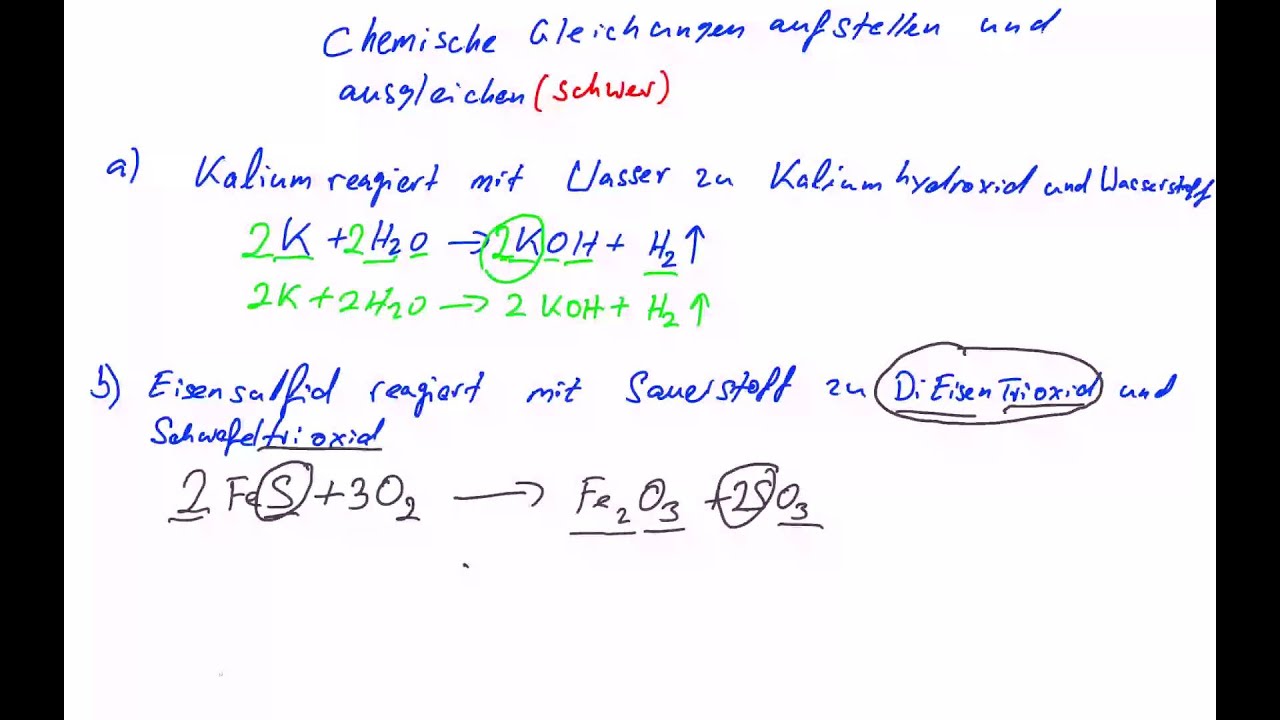 Chemische Gleichungen aufstellen und
ausgleichen (schwer)
a) Kalium reagiert mit Wasser zu Kaliumhydroxid und Wasserstoff
2K + 2H₂O → 2KOH + H₂↑
2K + 2H₂O → 2KOH + H₂↑
b) Eisensulfid reagiert mit Sauerstoff zu DiEisenTrioxid und
Schwefeltrioxid
2FeS + 3O₂ → Fe₂O₃ + 2SO₃